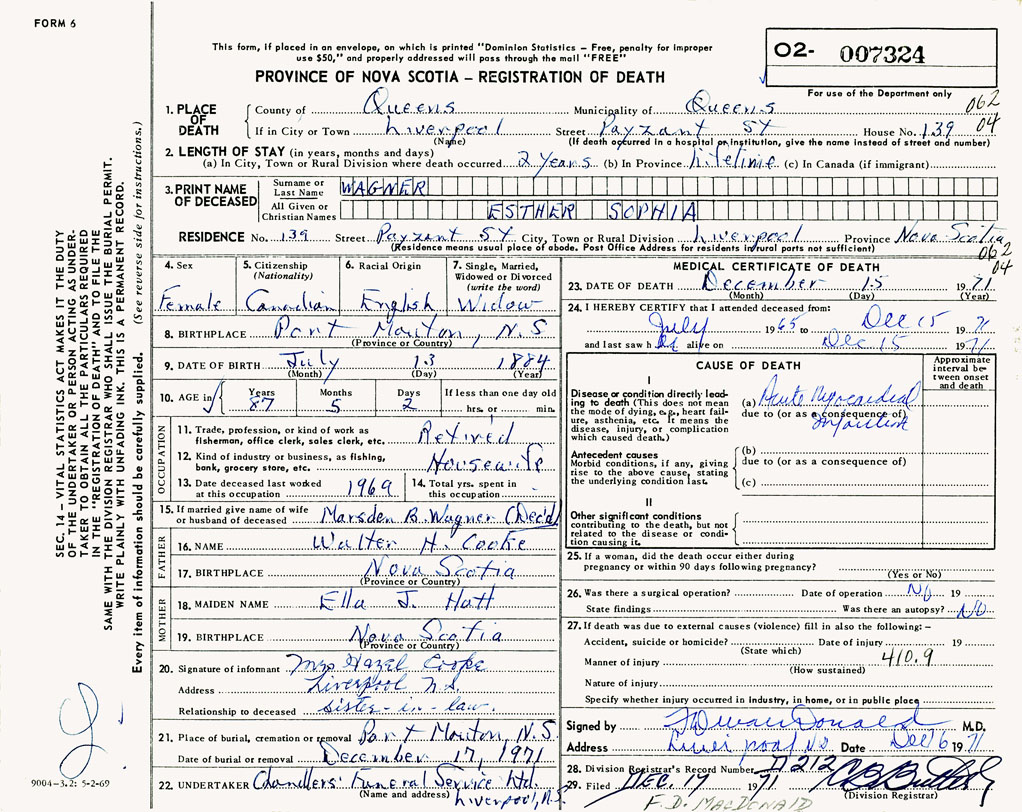 FORM 6
This form, if placed in an envelope, on which is printed "Dominion Statistics – Free, penalty for improper
use $50," and properly addressed will pass through the mail "FREE"
PROVINCE OF NOVA SCOTIA – REGISTRATION OF DEATH
O2- 007324
For use of the Department only
062
04
1. PLACE OF DEATH
County of Queens Municipality of Queens
If in City or Town Liverpool Street Payzant St House No. 139
(Name) (If death occurred in a hospital or institution, give the name instead of street and number)
2. LENGTH OF STAY (in years, months and days)
(a) In City, Town or Rural Division where death occurred 2 Years (b) In Province Lifetime (c) In Canada (if immigrant)
3. PRINT NAME OF DECEASED
Surname or Last Name WAGNER
All Given or Christian Names ESTHER SOPHIA
RESIDENCE No. 139 Street Payzant St City, Town or Rural Division Liverpool Province Nova Scotia
(Residence means usual place of abode. Post Office Address for residents in rural parts not sufficient)
062
04
4. Sex
Female
5. Citizenship
(Nationality)
Canadian
6. Racial Origin
English
7. Single, Married,
Widowed or Divorced
(write the word)
Widow
8. BIRTHPLACE Port Mouton, N.S
(Province or Country)
9. DATE OF BIRTH July 13 1884
(Month) (Day) (Year)
10. AGE in
Years Months Days If less than one day old
87 5 2 hrs. or min.
OCCUPATION
11. Trade, profession, or kind of work as
fisherman, office clerk, sales clerk, etc. Retired
12. Kind of industry or business, as fishing,
bank, grocery store, etc. Housewife
13. Date deceased last worked
at this occupation 1969
14. Total yrs. spent in
this occupation
15. If married give name of wife
or husband of deceased Marsden B. Wagner (Dec'd)
FATHER
16. NAME Walter H. Cooke
17. BIRTHPLACE Nova Scotia
(Province or Country)
MOTHER
18. MAIDEN NAME Ella J. Hatt
19. BIRTHPLACE Nova Scotia
(Province or Country)
20. Signature of informant Mrs Hazel Cooke
Address Liverpool N.S.
Relationship to deceased sister-in-law.
21. Place of burial, cremation or removal Port Mouton, N.S.
Date of burial or removal December 17, 1971
22. UNDERTAKER Chandlers' Funeral Service Ltd.
(Name and address) Liverpool, N.S.
MEDICAL CERTIFICATE OF DEATH
23. DATE OF DEATH December 15 1971
(Month) (Day) (Year)
24. I HEREBY CERTIFY that I attended deceased from:
July 1965 to Dec 15 1971
and last saw her alive on Dec 15 1971
CAUSE OF DEATH
Approximate
interval be-
tween onset
and death
I
Disease or condition directly lead-
ing to death (This does not mean
the mode of dying, e.g., heart fail-
ure, asthenia, etc. It means the
disease, injury, or complication
which caused death.)
(a) Acute Myocardial
due to (or as a consequence of)
infarction
Antecedent causes
Morbid conditions, if any, giving
rise to the above cause, stating
the underlying condition last.
(b)
due to (or as a consequence of)
(c)
II
Other significant conditions
contributing to the death, but not
related to the disease or condi-
tion causing it.
25. If a woman, did the death occur either during
pregnancy or within 90 days following pregnancy?
(Yes or No)
26. Was there a surgical operation? Date of operation No 19
State findings Was there an autopsy? No
27. If death was due to external causes (violence) fill in also the following:–
Accident, suicide or homicide? Date of injury 19
(State which)
Manner of injury 410.9
(How sustained)
Nature of injury
Specify whether injury occurred in industry, in home, or in public place
Signed by M.D.
Address Liverpool NS Date Dec 16 1971
28. Division Registrar's Record Number 212
29. Filed DEC. 17 1971
(Division Registrar)
F.D. MACDONALD
SEC. 14 – VITAL STATISTICS ACT MAKES IT THE DUTY
OF THE UNDERTAKER OR PERSON ACTING AS UNDER-
TAKER TO OBTAIN ALL THE PARTICULARS REQUIRED
IN THE "REGISTRATION OF DEATH" AND TO FILE THE
SAME WITH THE DIVISION REGISTRAR WHO SHALL ISSUE THE BURIAL PERMIT.
WRITE PLAINLY WITH UNFADING INK. THIS IS A PERMANENT RECORD.
Every item of information should be carefully supplied. (See reverse side for instructions.)
9004-3.2: 5-2-69